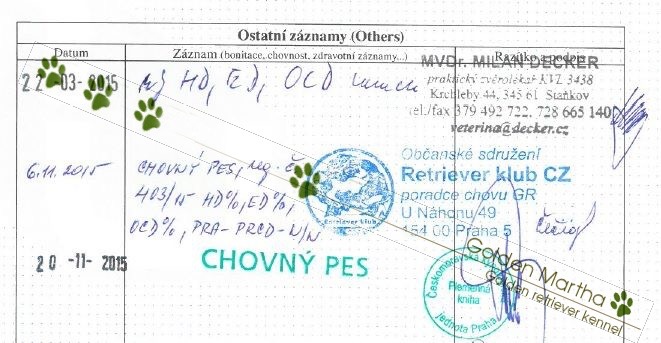 Ostatní záznamy (Others)
Datum Záznam (bonitace, chovnost, zdravotní záznamy...) Razítko a podpis
MVDr. MILAN DECKER
22-03-2015 HD, ED, OCD
praktický zvěrolékař KVL 3438
Krchleby 44, 345 61 Staňkov
tel./fax 379 492 722, 728 665 140
veterina@decker.cz
6.11.2015 CHOVNÝ PES, reg. č.
403/15 HD%, ED%,
OCD%, PRA-PRCD-N/N
Retriever klub CZ
Občanské sdružení
Retriever klub CZ
poradce chovu GR
U Náhonu/49
154 00 Praha 5
20-11-2015 CHOVNÝ PES
Českomoravská
Plemenná
kniha
jednota Praha
Golden Martha
Golden retriever kennel